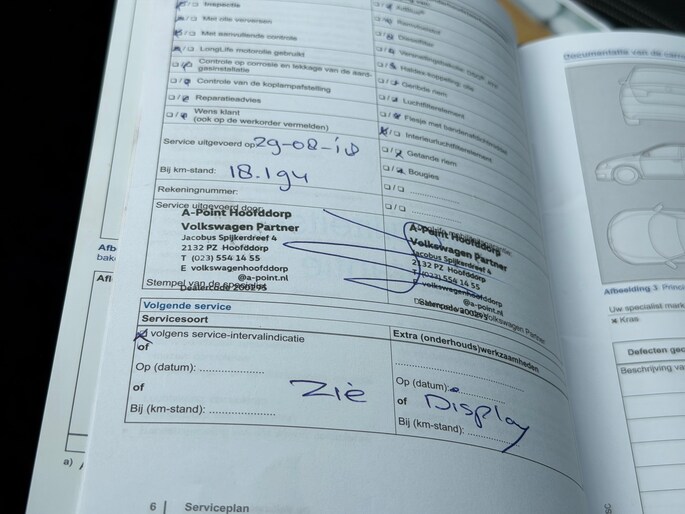 Inspectie
Met olie verversen
Met aanvullende controle
LongLife motorolie gebruikt
Controle op corrosie en lekkage van de aard-
gasinstallatie
Controle van de koplampafstelling
Reparatieadvies
Wens klant
(ook op de werkorder vermelden)
Service uitgevoerd op 29-08-18
Bij km-stand: 18.194
Rekeningnummer:
Service uitgevoerd door:
A-Point Hoofddorp
Volkswagen Partner
Jacobus Spijkerdreef 4
2132 PZ Hoofddorp
T (023) 554 14 55
E volkswagenhoofddorp
@a-point.nl
Dealercode 200295
Stempel van de specialist
Geribde riem
Luchtfilterelement
Interieurluchtfilterelement
Getande riem
Bougies
A-Point Hoofddorp
Volkswagen Partner
Jacobus Spijkerdreef 4
2132 PZ Hoofddorp
T (023) 554 14 55
E volkswagenhoofddorp
@a-point.nl
Dealercode 200295
Volkswagen Partner
Volgende service
Servicesoort
volgens service-intervalindicatie
of
Op (datum): ....................
of
Bij (km-stand): ....................
Extra (onderhouds)werkzaamheden
Op (datum):
of
Bij (km-stand):
Zie Display
6 | Serviceplan
Documentatie van de carro
Afbeelding 3 Princi
Uw specialist mark
Kras
Defecten gec
Beschrijving va
Afb
bake
Afl
a)